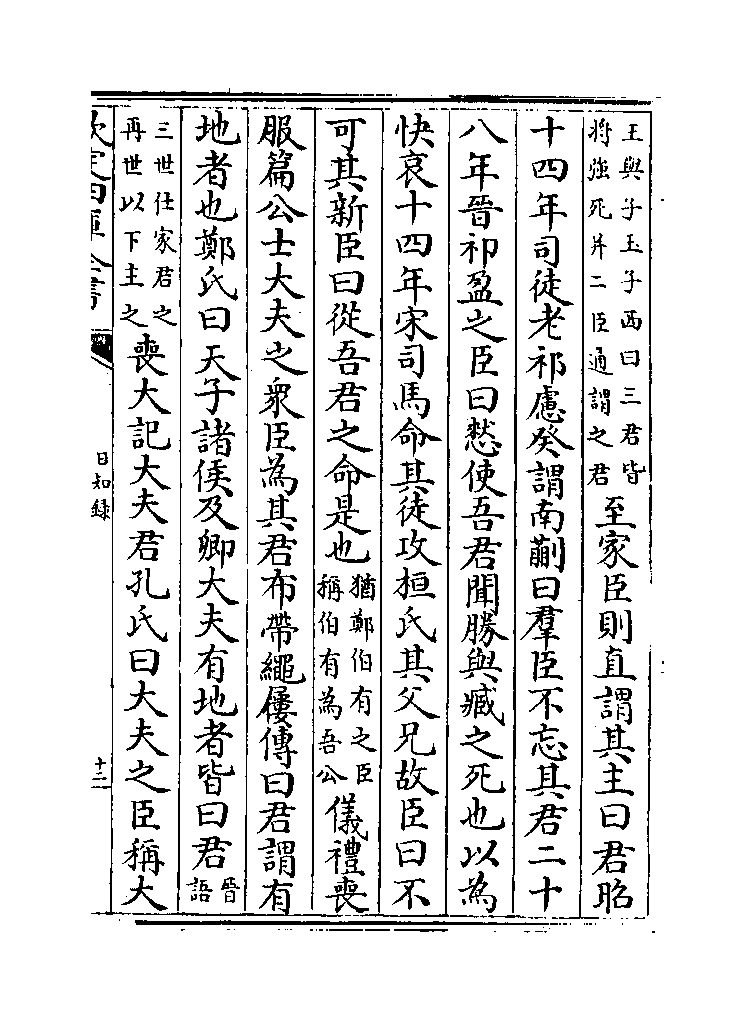 王與子玉子西曰三君皆
將強死并二臣通謂之君
至家臣則直謂其主曰君昭
十四年司徒老祁慮癸謂南蒯曰羣臣不忘其君二十
八年晉祁盈之臣曰慭使吾君聞勝與臧之死也以為
快哀十四年宋司馬命其徒攻桓氏其父兄故臣曰不
可其新臣曰從吾君之命是也
猶鄭伯有之臣
稱伯有為吾公
儀禮喪
服篇公士大夫之衆臣為其君布帶繩屨傳曰君謂有
地者也鄭氏曰天子諸侯及卿大夫有地者皆曰君
晉
語
三世仕家君之
再世以下主之
喪大記大夫君孔氏曰大夫之臣稱大
欽定四庫全書
日知錄
十二